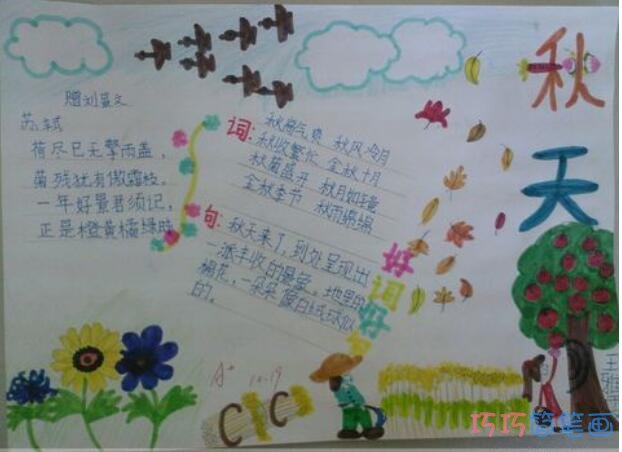 秋天
赠刘景文
苏轼
荷尽已无擎雨盖,
菊残犹有傲霜枝。
一年好景君须记,
正是橙黄橘绿时
词:秋高气爽 秋风冷月
秋收繁忙 金秋十月
秋菊盛开 秋月如镜
金秋季节 秋雨绵绵
句:秋天来了,到处呈现出
一派丰收的景象。地里的
棉花,一朵朵 像白绒球似
的。
好词好
A+ 10.19
巧巧简笔画